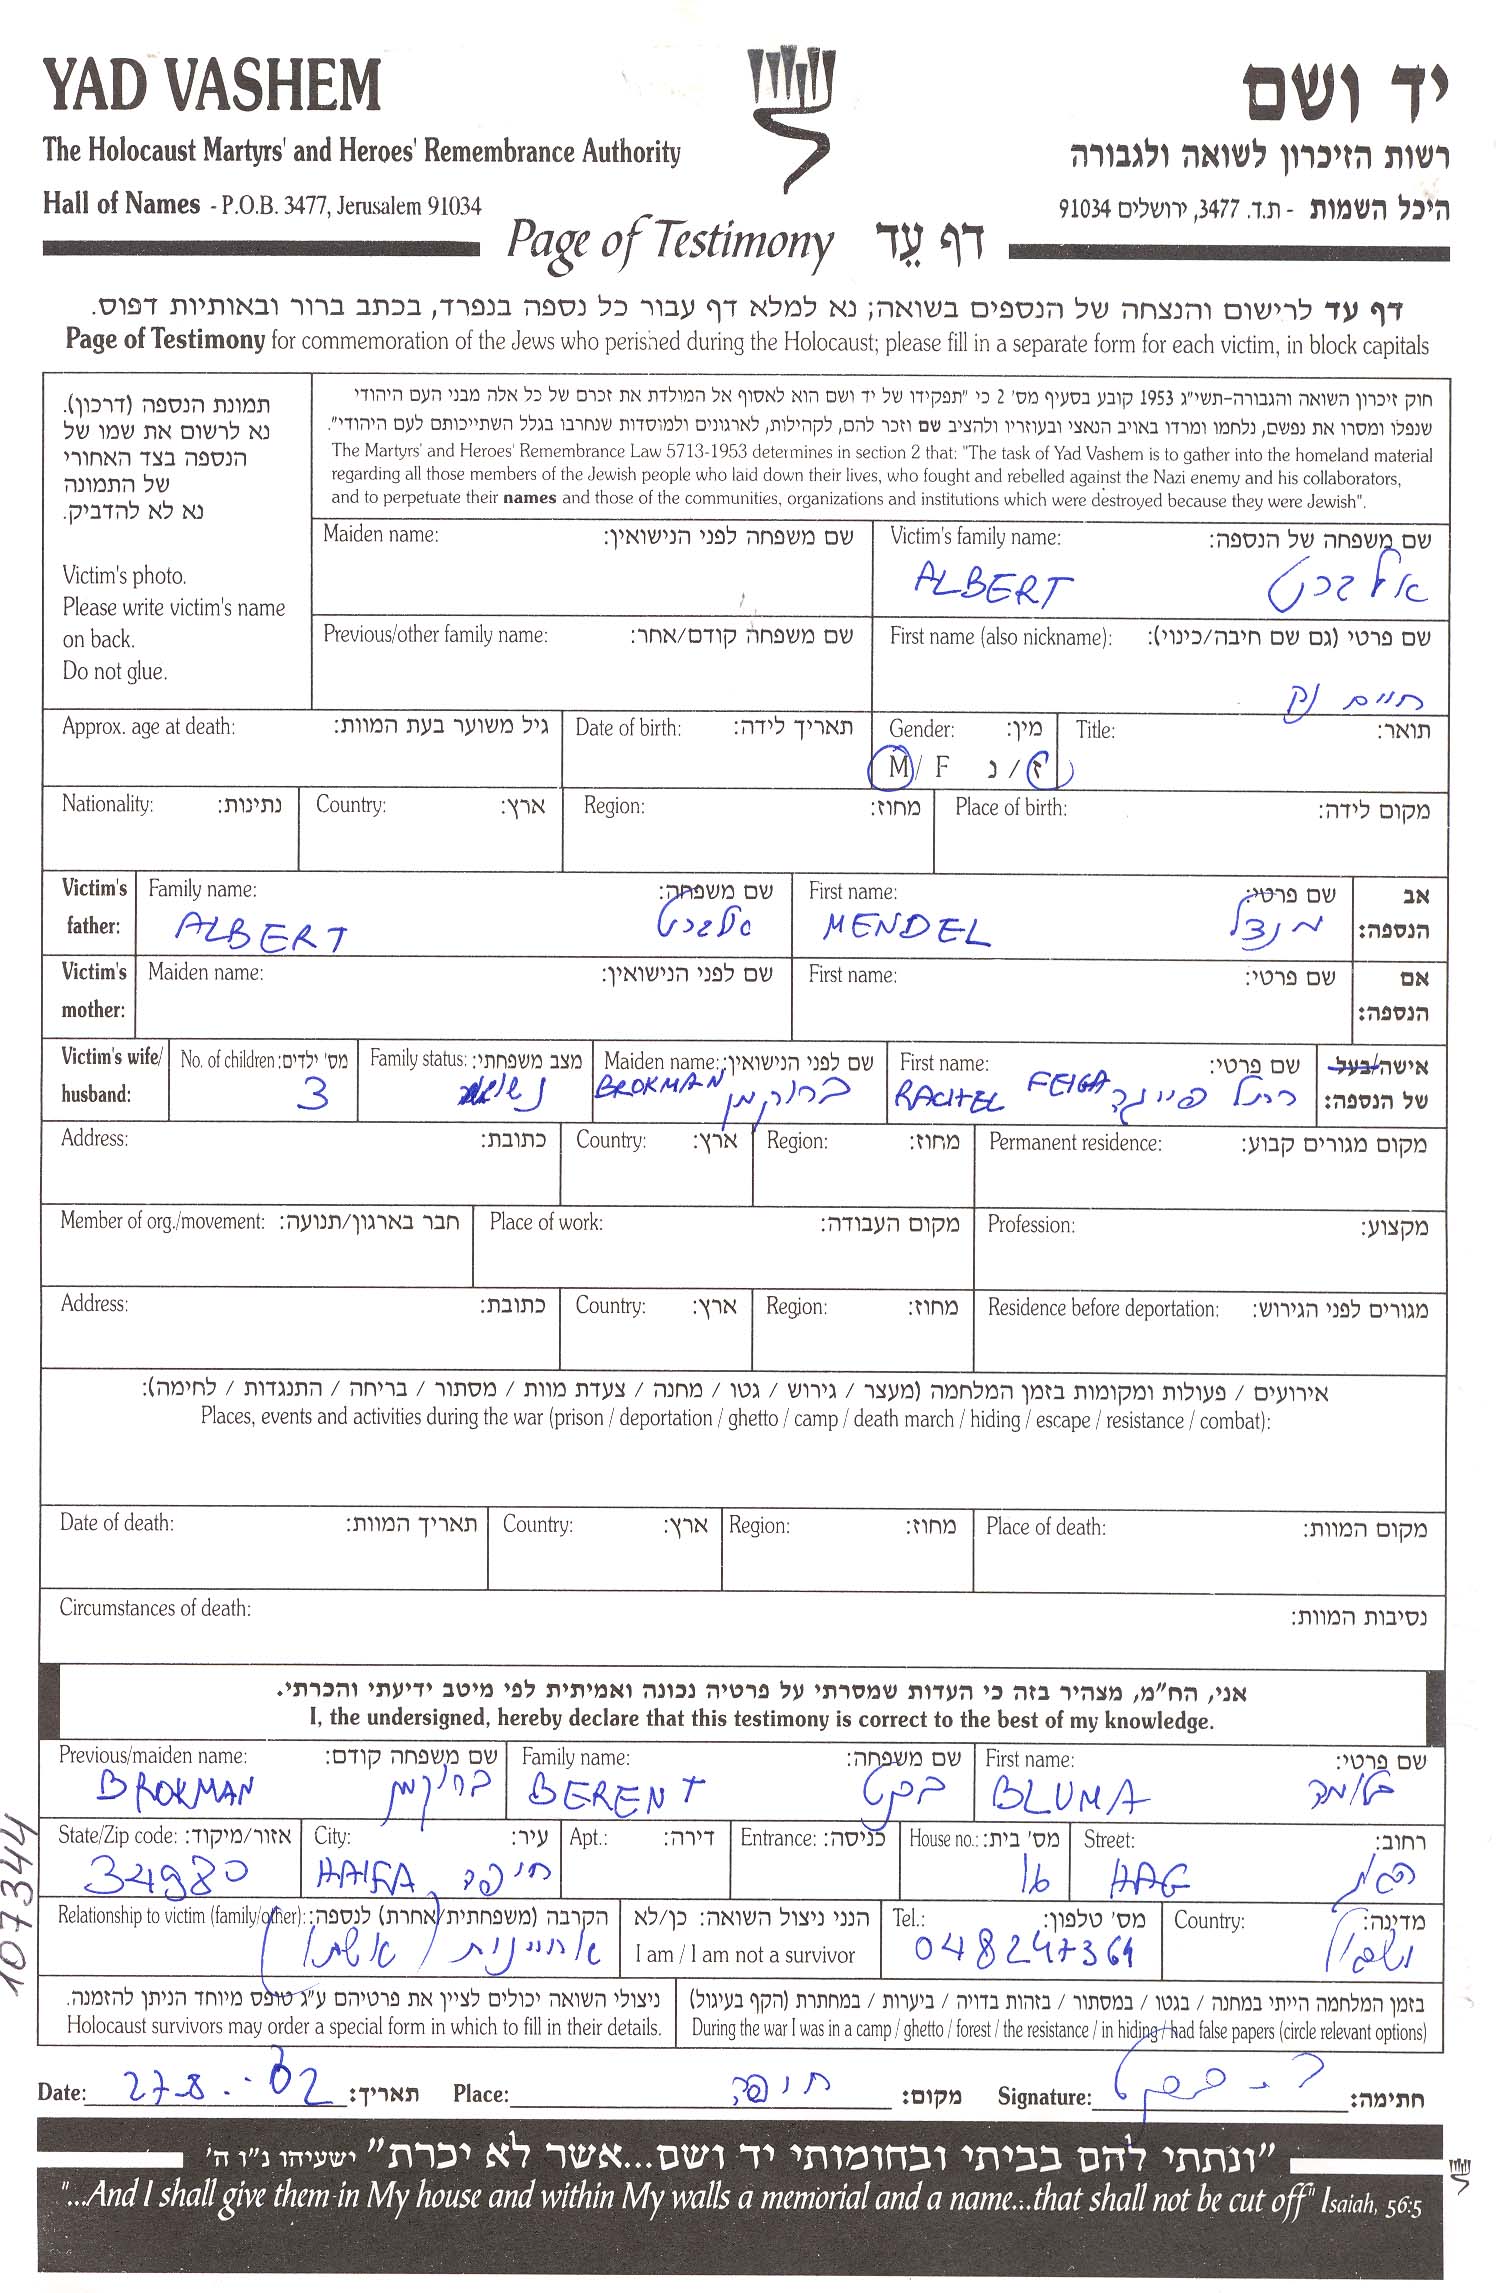 YAD VASHEM
יד ושם
The Holocaust Martyrs' and Heroes' Remembrance Authority
רשות הזיכרון לשואה ולגבורה
Hall of Names - P.O.B. 3477, Jerusalem 91034
היכל השמות - ת.ד. 3477, ירושלים 91034
Page of Testimony דף עֵד
דף עד לרישום והנצחה של הנספים בשואה; נא למלא דף עבור כל נספה בנפרד, בכתב ברור ובאותיות דפוס.
Page of Testimony for commemoration of the Jews who perished during the Holocaust; please fill in a separate form for each victim, in block capitals
תמונת הנספה (דרכון).
נא לרשום את שמו של
הנספה בצד האחורי
של התמונה
נא לא להדביק.
Victim's photo.
Please write victim's name
on back.
Do not glue.
חוק זיכרון השואה והגבורה-תשי"ג 1953 קובע בסעיף מס' 2 כי "תפקידו של יד ושם הוא לאסוף אל המולדת את זכרם של כל אלה מבני העם היהודי
שנפלו ומסרו את נפשם, נלחמו ומרדו באויב הנאצי ובעוזריו ולהציב שם וזכר להם, לקהילות, לארגונים ולמוסדות שנחרבו בגלל השתייכותם לעם היהודי".
The Martyrs' and Heroes' Remembrance Law 5713-1953 determines in section 2 that: "The task of Yad Vashem is to gather into the homeland material
regarding all those members of the Jewish people who laid down their lives, who fought and rebelled against the Nazi enemy and his collaborators,
and to perpetuate their names and those of the communities, organizations and institutions which were destroyed because they were Jewish".
Maiden name: שם משפחה לפני הנישואין:
Victim's family name: שם משפחה של הנספה:
ALBERT אלברט
Previous/other family name: שם משפחה קודם/אחר:
First name (also nickname): שם פרטי (גם שם חיבה/כינוי):
חיים
Approx. age at death: גיל משוער בעת המוות:
Date of birth: תאריך לידה:
Gender: מין:
M / F נ / ז
Title: תואר:
Nationality: נתינות:
Country: ארץ:
Region: מחוז:
Place of birth: מקום לידה:
Victim's father: אב הנספה:
Family name: שם משפחה:
ALBERT אלברט
First name: שם פרטי:
MENDEL מנדל
Victim's mother: אם הנספה:
Maiden name: שם לפני הנישואין:
First name: שם פרטי:
Victim's wife/ husband: אישה/בעל של הנספה:
No. of children: מס' ילדים:
3
Family status: מצב משפחתי:
נשוי
Maiden name: שם לפני הנישואין:
BROKMAN ברוקמן
First name: שם פרטי:
RACHEL FEIGA רחל פייגה
Address: כתובת:
Country: ארץ:
Region: מחוז:
Permanent residence: מקום מגורים קבוע:
Member of org./movement: חבר בארגון/תנועה:
Place of work: מקום העבודה:
Profession: מקצוע:
Address: כתובת:
Country: ארץ:
Region: מחוז:
Residence before deportation: מגורים לפני הגירוש:
אירועים / פעולות ומקומות בזמן המלחמה (מעצר / גירוש / גטו / מחנה / צעדת מוות / מסתור / בריחה / התנגדות / לחימה):
Places, events and activities during the war (prison / deportation / ghetto / camp / death march / hiding / escape / resistance / combat):
Date of death: תאריך המוות:
Country: ארץ:
Region: מחוז:
Place of death: מקום המוות:
Circumstances of death: נסיבות המוות:
אני, הח"מ, מצהיר בזה כי העדות שמסרתי על פרטיה נכונה ואמיתית לפי מיטב ידיעתי והכרתי.
I, the undersigned, hereby declare that this testimony is correct to the best of my knowledge.
Previous/maiden name: שם משפחה קודם:
BROKMAN ברוקמן
Family name: שם משפחה:
BERENT ברנט
First name: שם פרטי:
BLUMA בלומה
State/Zip code: אזור/מיקוד:
34980
City: עיר:
HAIFA חיפה
Apt.: דירה:
Entrance: כניסה:
House no.: מס' בית:
Street: רחוב:
HAG
Relationship to victim (family/other): הקרבה (משפחתית/אחרת) לנספה:
אחיינית (אשתו)
הנני ניצול השואה: כן/לא
I am / I am not a survivor
Tel.: מס' טלפון:
048247364
Country: מדינה:
ישראל
107344
ניצולי השואה יכולים לציין את פרטיהם ע"ג טופס מיוחד הניתן להזמנה.
Holocaust survivors may order a special form in which to fill in their details.
בזמן המלחמה הייתי במחנה / בגטו / במסתור / בזהות בדויה / ביערות / במחתרת (הקף בעיגול)
During the war I was in a camp / ghetto / forest / the resistance / in hiding / had false papers (circle relevant options)
Date: 27.8.02 תאריך: Place: חיפה מקום: Signature: ב. ברנט חתימה:
"ונתתי להם בביתי ובחומותי יד ושם...אשר לא יכרת" ישעיהו נ"ו ה'
"...And I shall give them in My house and within My walls a memorial and a name...that shall not be cut off" Isaiah, 56:5